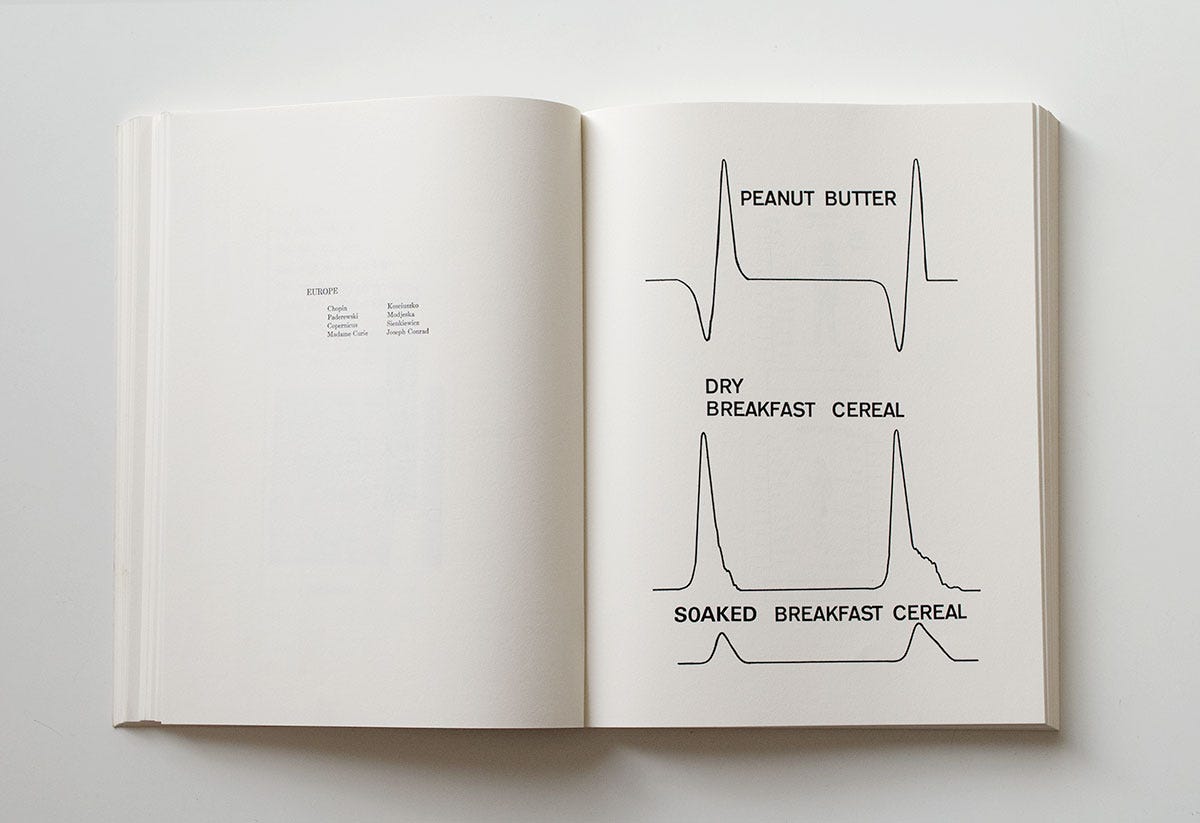 EUROPE
Chopin
Paderewski
Copernicus
Madame Curie
Kosciuszko
Modjeska
Sienkiewicz
Joseph Conrad
PEANUT BUTTER
DRY
BREAKFAST CEREAL
SOAKED BREAKFAST CEREAL